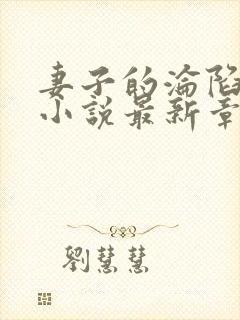 妻子的淪陷
小說最新章
劉慧慧